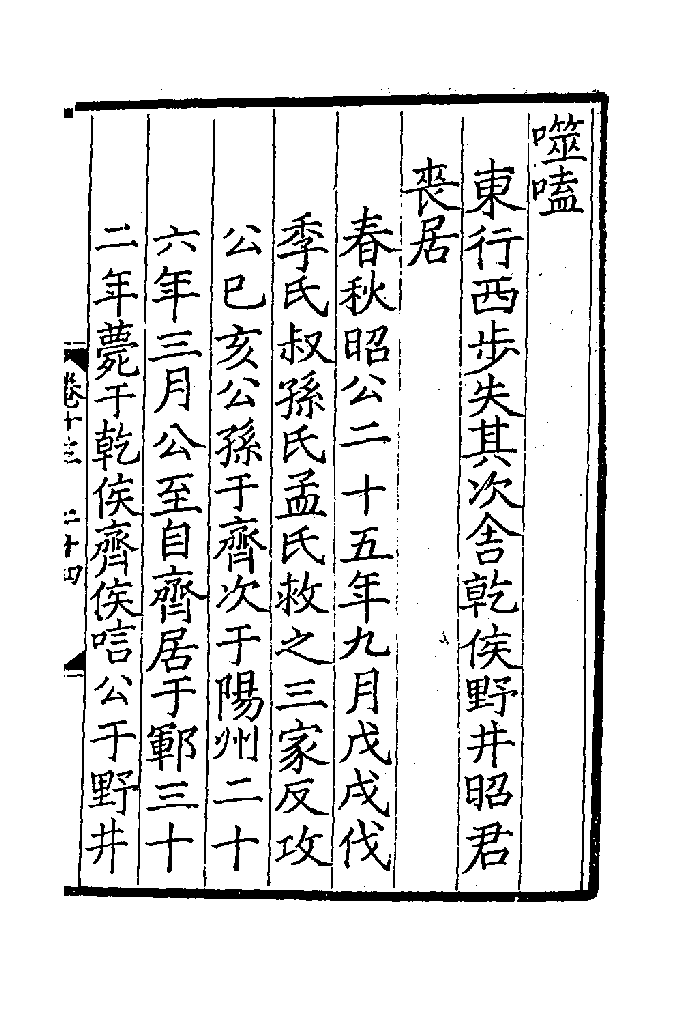 噬嗑
東行西步失其次舍乾侯野井昭君
喪居
春秋昭公二十五年九月戊戌伐
季氏叔孫氏孟氏救之三家反攻
公巳亥公孫于齊次于陽州二十
六年三月公至自齊居于鄆三十
二年薨于乾侯齊侯唁公于野井
卷十三 二十四